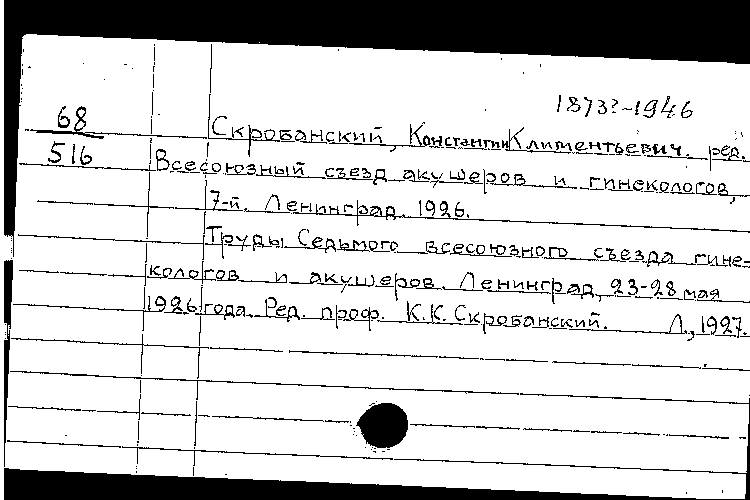 1873?-1946
68
Скробанский, Константин Климентьевич. ред.
516
Всесоюзный съезд акушеров и гинекологов,
7-й. Ленинград. 1926.
Труды Седьмого всесоюзного съезда гине-
кологов и акушеров. Ленинград, 23-28 мая
1926 года. Ред. проф. К.К. Скробанский. Л., 1927.